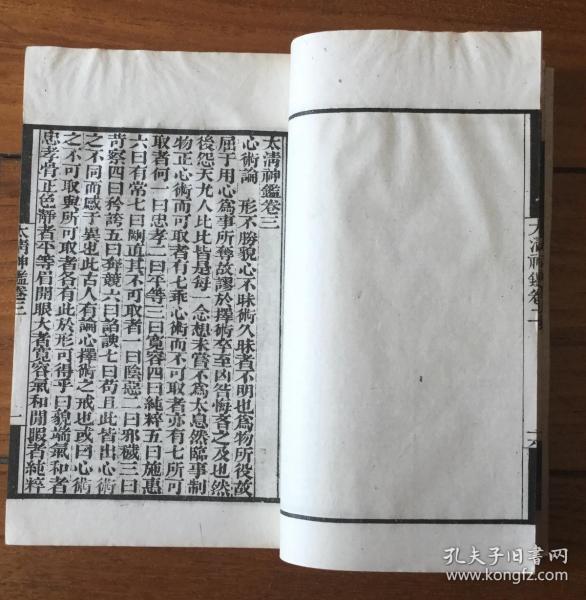 太清神鑑卷二
太清神鑑卷三
心術論　形不勝貌心不昧術久昧者不明也爲物所役故
屈于用心爲事所奪故謬於擇術卒至凶咎悔吝之及也然
後怨天尤人比比皆是每一念想未嘗不爲太息然臨事制
物正心術而可取者有七乖心術而不可取者亦有七所可
取者何一曰忠孝二曰平等三曰寬容四曰純粹五曰施惠
六曰有常七曰剛直其不可取者一曰陰惡二曰邪穢三曰
苛察四曰矜誇五曰奔競六曰諂諛七曰苟且此皆出心術
之不同而感于異也此古人有論心擇術之戒也或曰心術
之不可取與所可取者各有此於形可得乎曰貌端氣和者
忠孝骨正色靜者平等眉開眼大者寬容氣和閒暇者純粹
太清神鑑卷三
一
孔夫子旧书网
www.kongfz.com